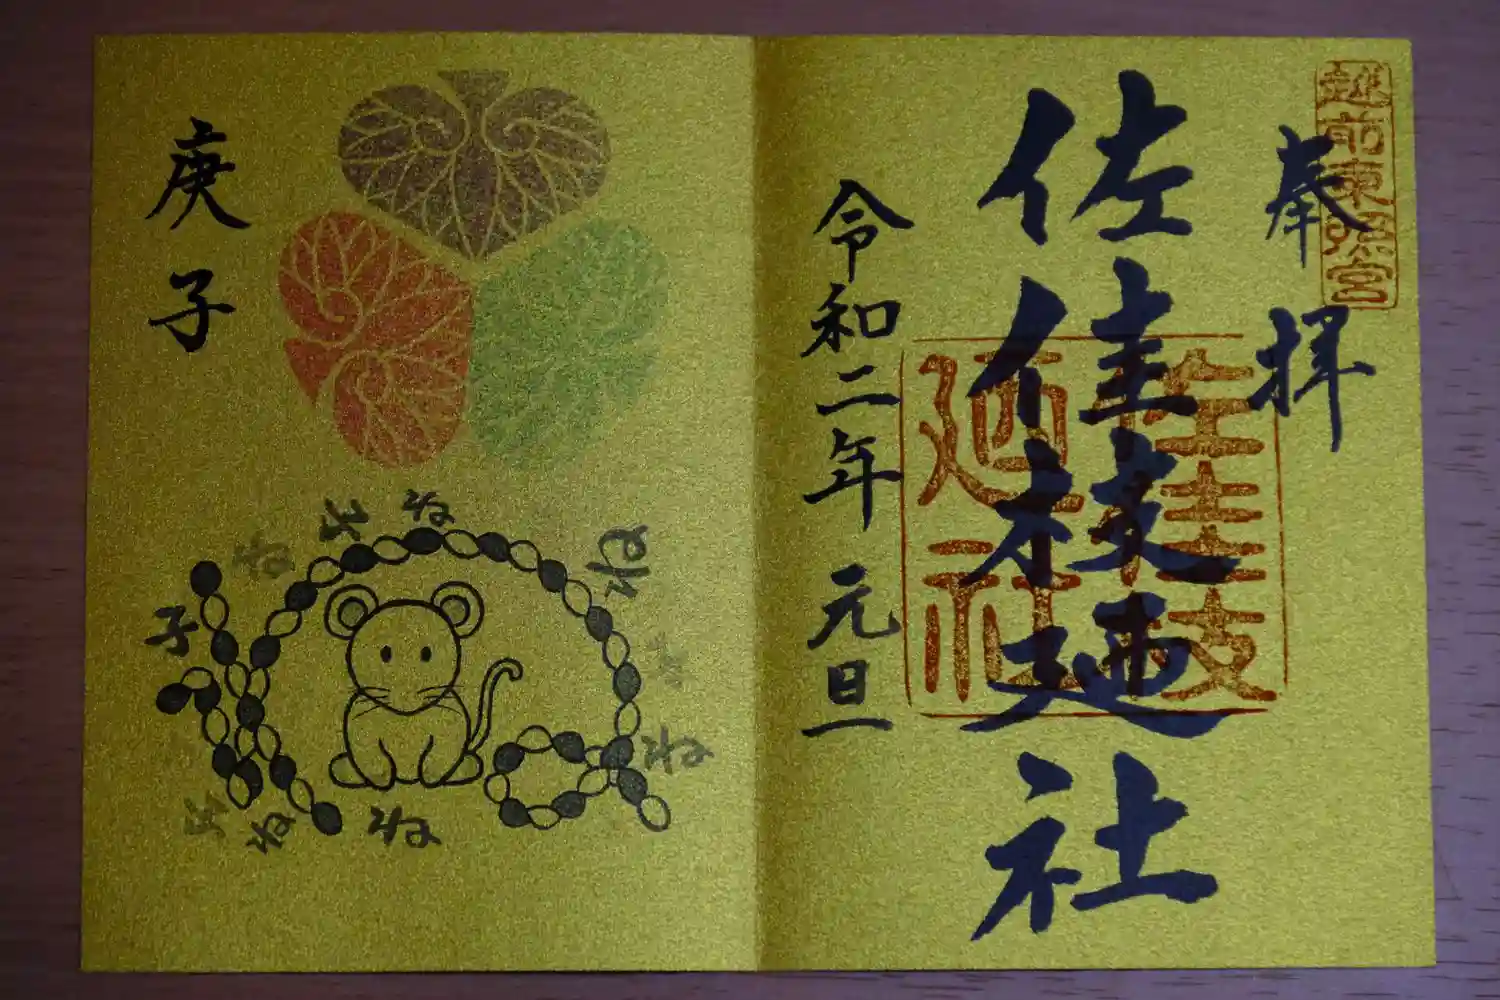 越前東照宮
奉拝
佐佳枝廼社
佐佳枝廼社
令和二年 元旦
庚子
子
ね
ね
ね
ね